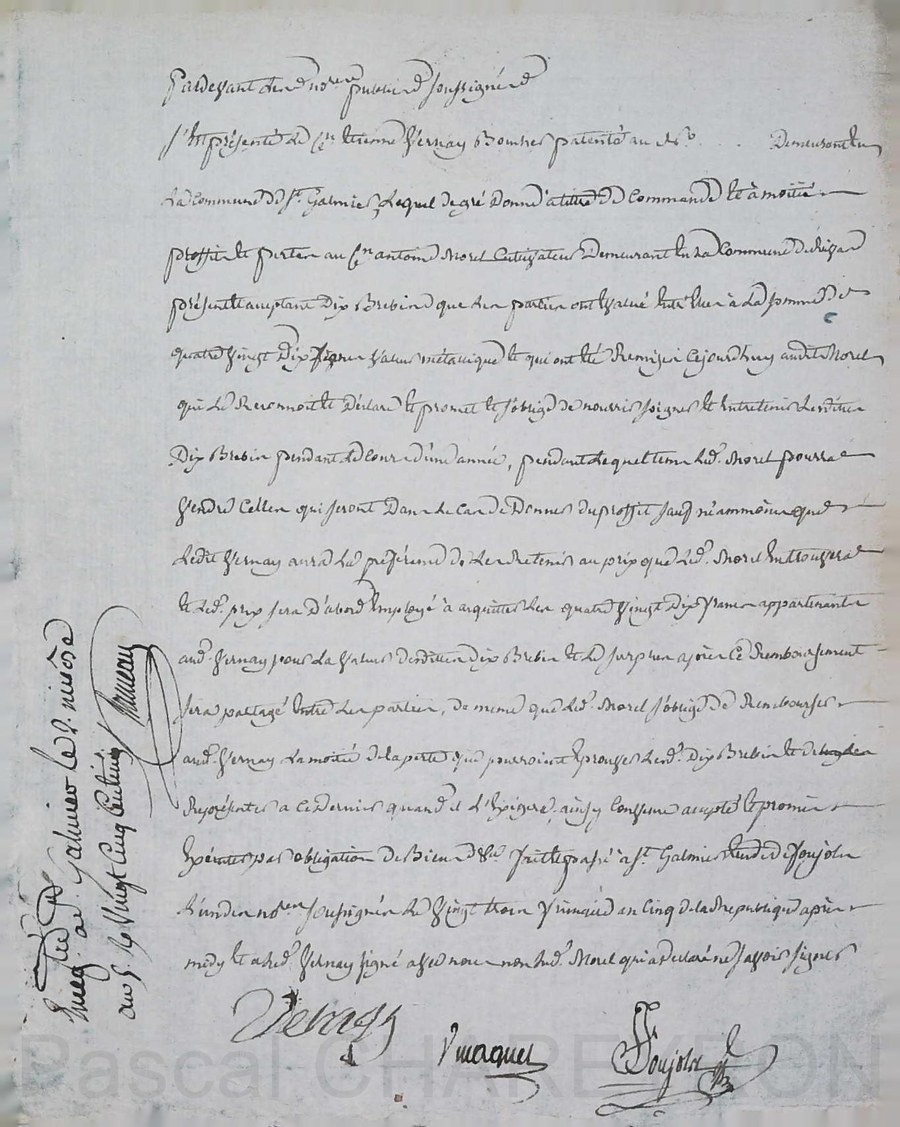 Pardevant les nores publics soussignés
s'est présenté le Cn Etienne Vernay Boucher patenté au No . . . demeurant en
la Commune de St. Galmier, lequel de gré donne à titre de Commande et à moitié
proffit et perte au Cn antoine Morel Cultivateur demeurant en la Commune de
présent et acceptant dix Brebis que les parties ont Evalué Entr'elles à la somme de
quatre Vingt Dix francs valeur métallique et qui ont été Remises cejourdhuy audit Morel
qui le Reconnoit et déclare et promet et s'oblige de nourrir soigner et Entretenir lesdites
Dix Brebis pendant le Cours d'une année, pendant lequel tems led. Morel pourra
Vendre Celles qui seront dans le Cas de Donner du proffit sauf néammoins que
ledit Vernay aura la préférence de les Retenir au prix que led. Morel En trouvera
et led. prix sera d'abord Employé à acquitter les quatre Vingt dix francs appartenants
aud. Vernay pour la Valeur desdittes dix Brebis et le surplus après Ce Remboursement
sera partagé Entre les parties, de meme que led. Morel s'oblige de Rembourser
aud. Vernay la moitié de la perte que pourroient Eprouver lesd. dix Brebis et de
Représenter à Ce dernier quand il l'Exigera, ainsy Convenu accepté et promis
Exécuter par obligation de Biens &a fait et passé à St. Galmier Etude de Poujols
l'un des nores soussignés le Vingt trois Frimaire an Cinq de la République après
midy et a led. Vernay signé avec nous non led. Morel qui a déclaré ne savoir signer
Vernay
Vmaquet
Poujols
Enregistré à Galmier le 2. nivôse
an 5. R. Vingt Cinq Centimes
Pascal CHAREYRON